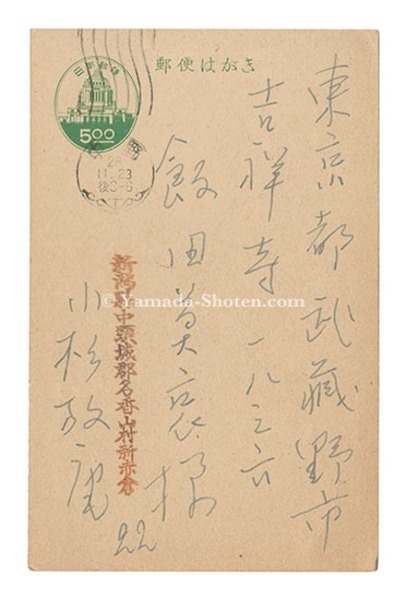 郵便はがき
日本郵便
5.00
28
11.23
後0-6
東京都武藏野市
吉祥寺一八三六
飯田莫哀様
新潟県中頸城郡名香山村新赤倉
小杉放庵
22
© Yamada-Shoten.com